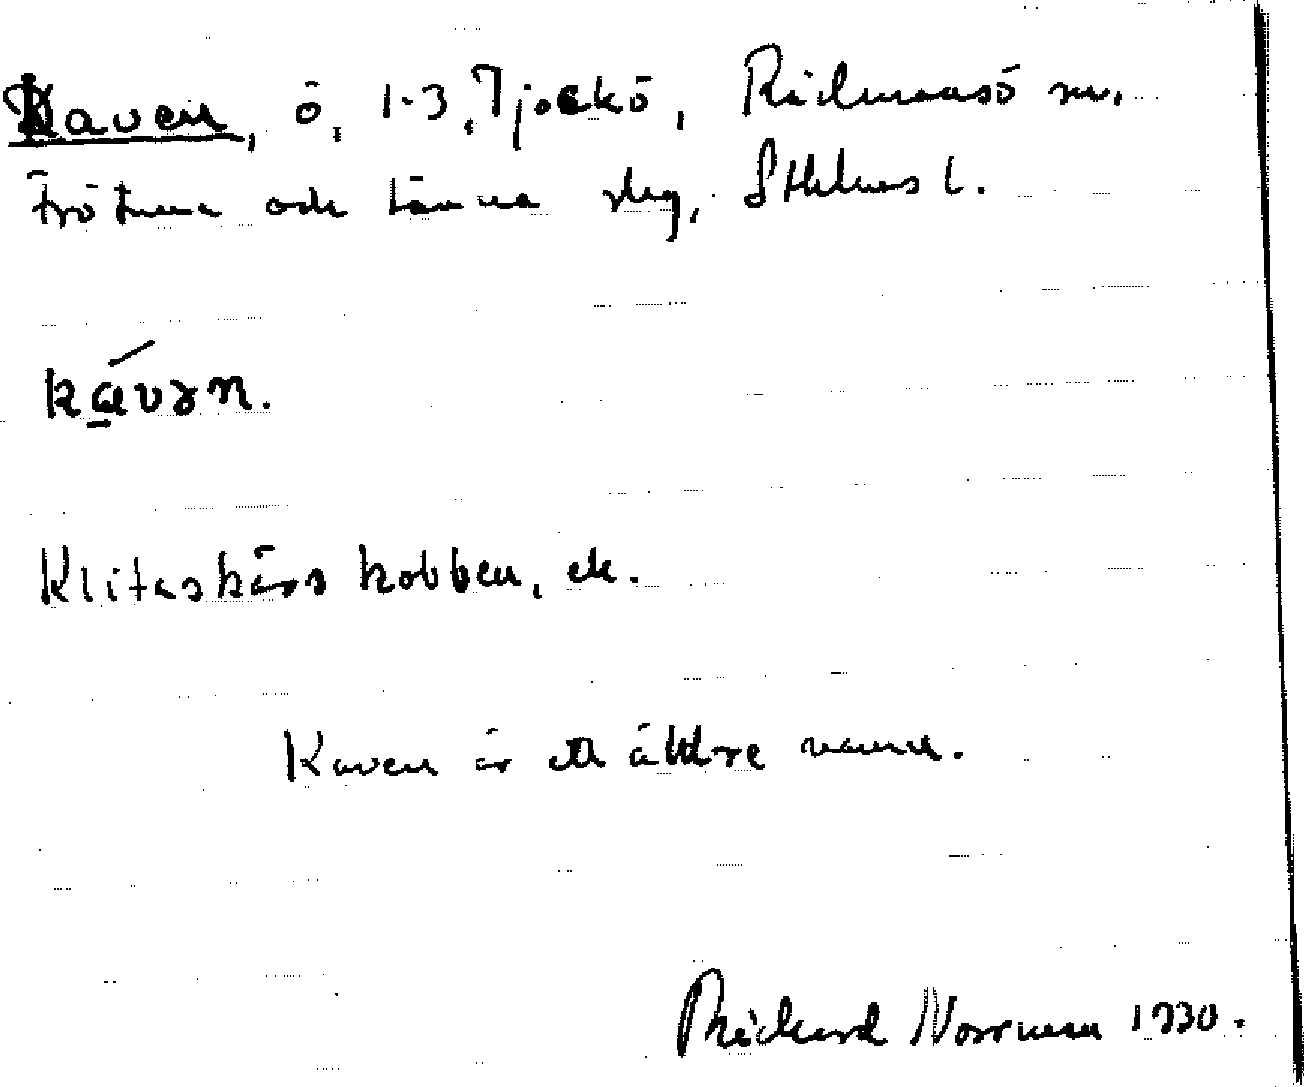 Kaven, ö, 1-3, Tjockö, Rådmansö sn.
Frötuna och Länna slg, Sthlms l.
kávən.
Klitaskärs kobben, ek.
Kaven är ett äldre namn.
Rickard Norrman 1930.